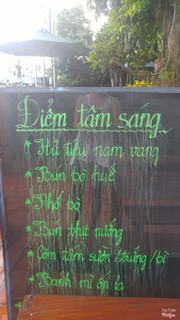 Điểm tâm sáng
* Hủ tiếu nam vang
* Bún bò huế
* Phở bò
* Bún thịt nướng
* Cơm tấm sườn/trứng/bì
* Bánh mì ốp la